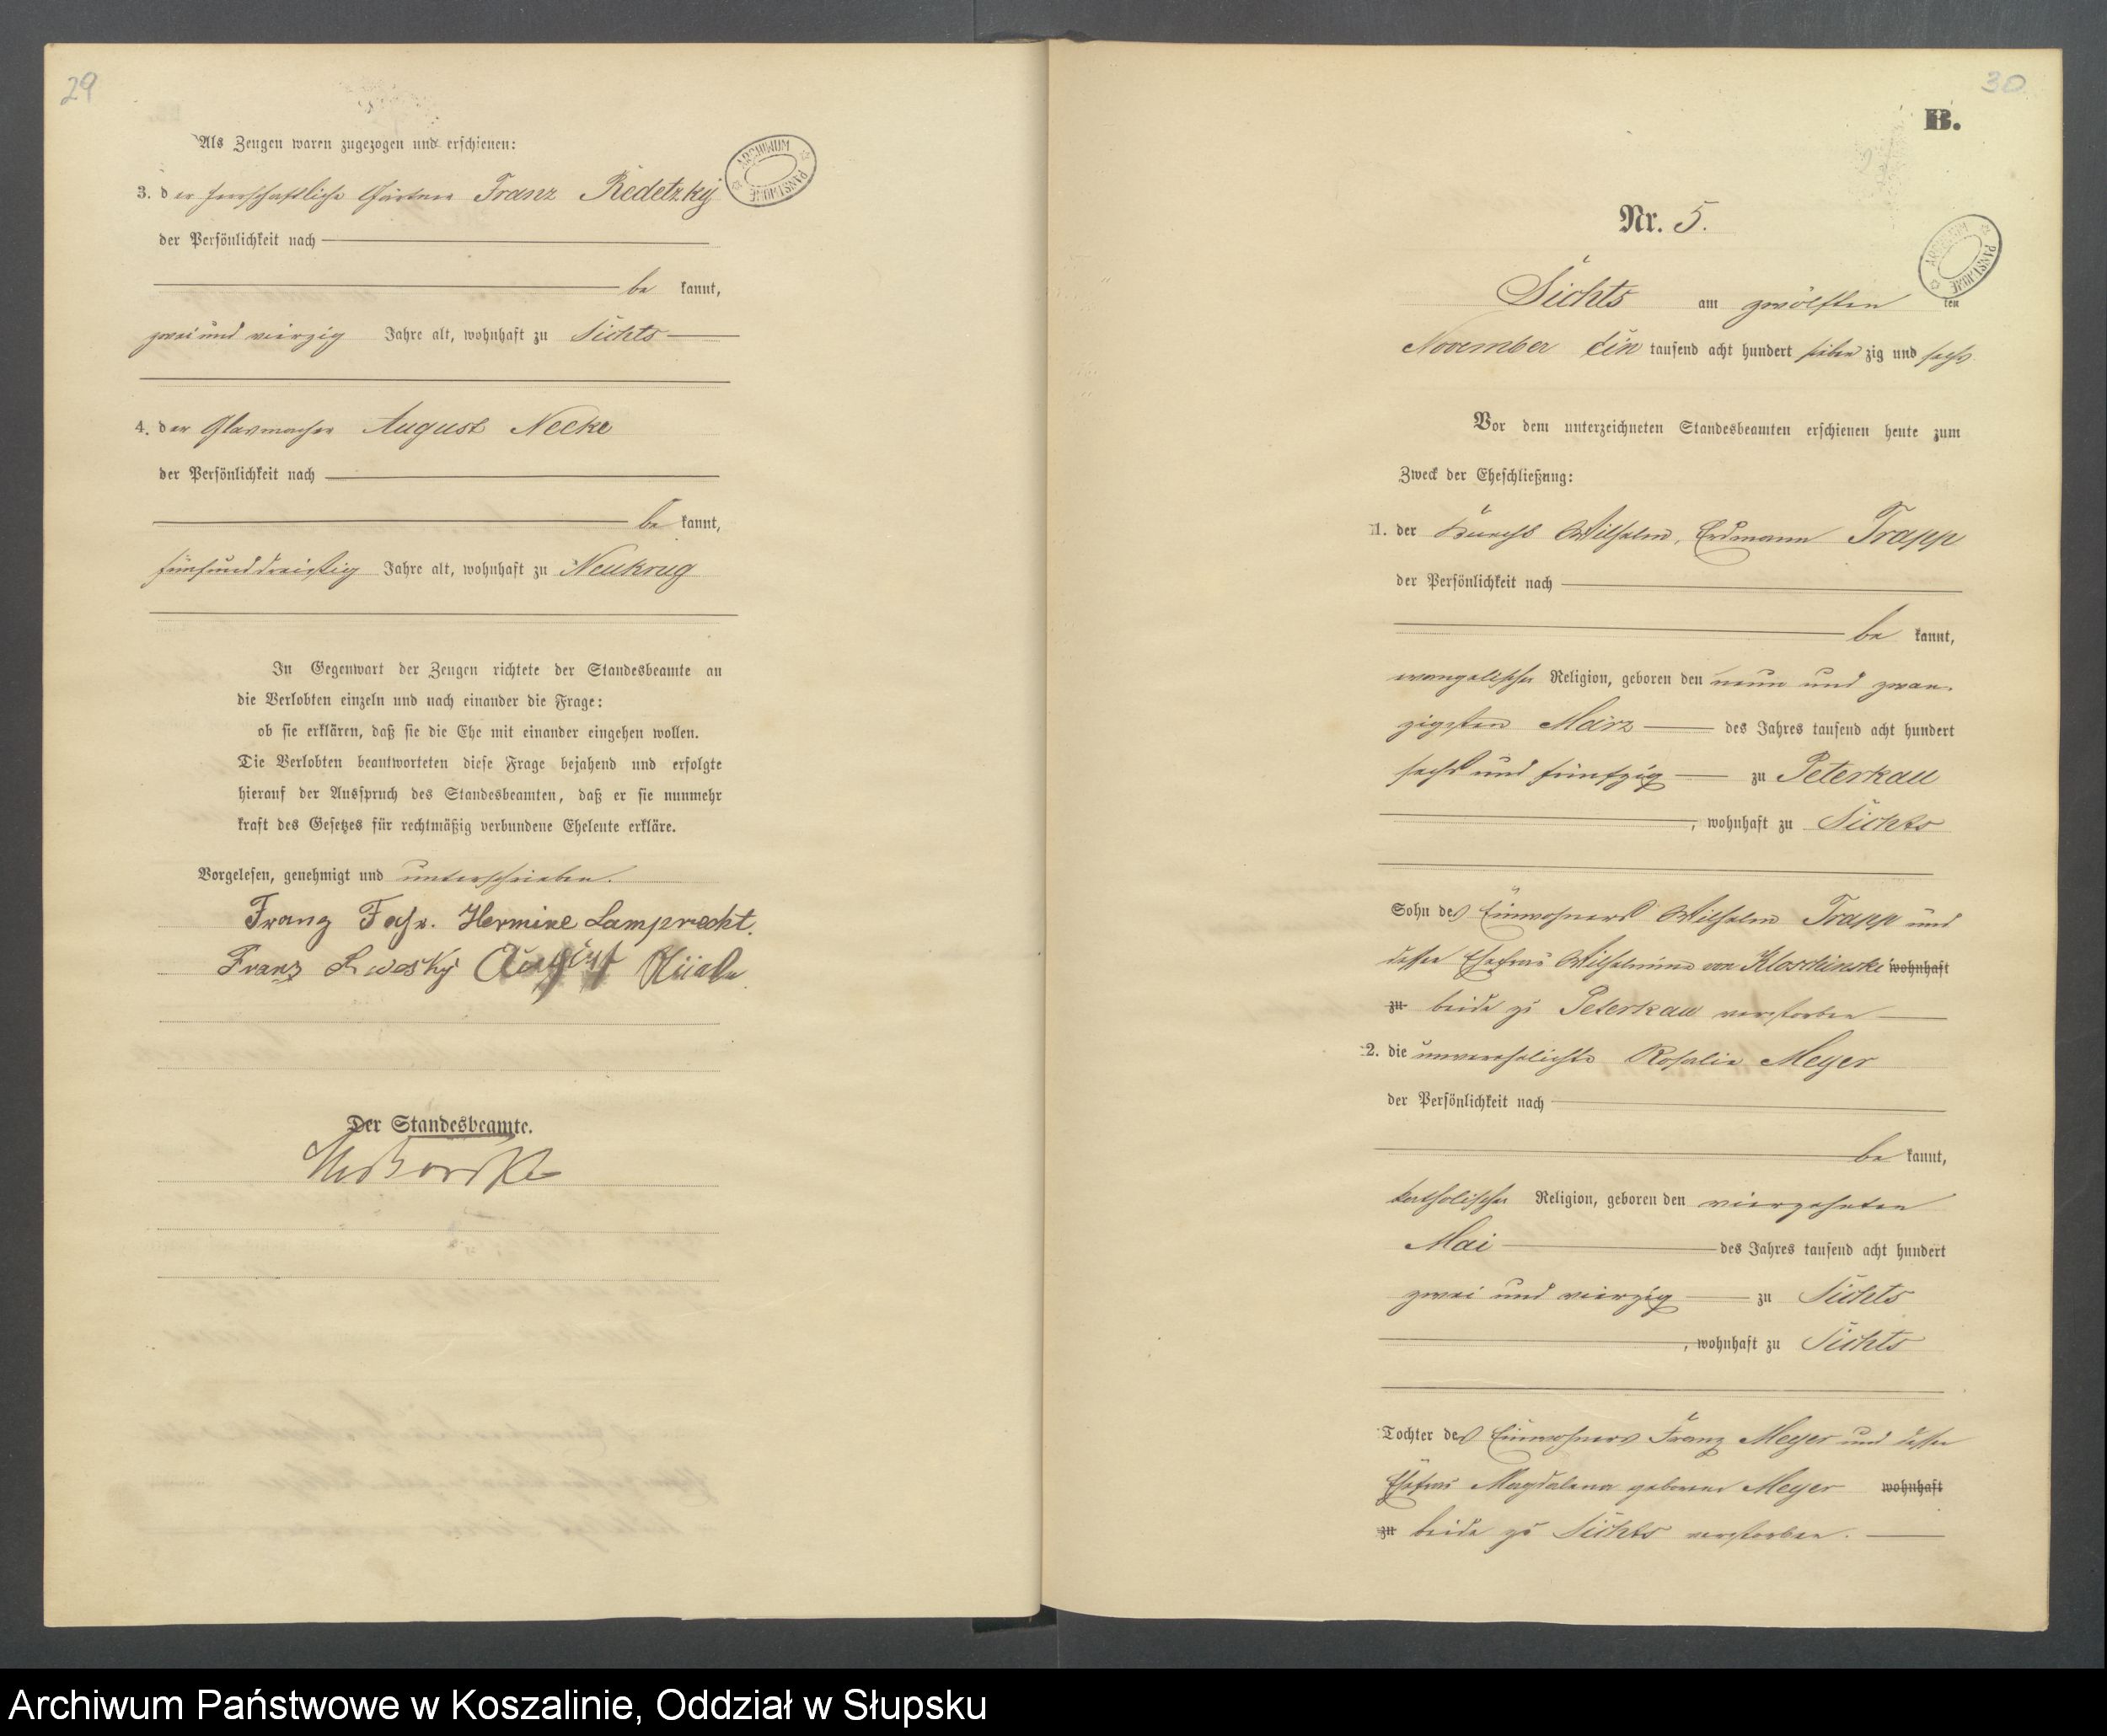 29
Als Zeugen waren zugezogen und erschienen:
ARCHIWUM PAŃSTWOWE
3. der herrschaftliche Gärtner Franz Redetzky
der Persönlichkeit nach
be kannt,
zwei und vierzig Jahre alt, wohnhaft zu Lichts
4. der Glasmacher August Necke
der Persönlichkeit nach
be kannt,
fünfunddreißig Jahre alt, wohnhaft zu Neukrug
In Gegenwart der Zeugen richtete der Standesbeamte an
die Verlobten einzeln und nach einander die Frage:
ob sie erklären, daß sie die Ehe mit einander eingehen wollen.
Die Verlobten beantworteten diese Frage bejahend und erfolgte
hierauf der Ausspruch des Standesbeamten, daß er sie nunmehr
kraft des Gesetzes für rechtmäßig verbundene Eheleute erkläre.
Vorgelesen, genehmigt und unterschrieben.
Franz Hermine Lamprecht.
Franz August
Der Standesbeamte.
30
B.
Nr. 5.
ARCHIWUM PAŃSTWOWE
am zwölften ten
November ein tausend acht hundert sieben zig und sechs
Vor dem unterzeichneten Standesbeamten erschienen heute zum
Zweck der Eheschließung:
1. der Knecht Wilhelm, Erdmann Trapp
der Persönlichkeit nach
be kannt,
evangelischer Religion, geboren den neun und zwan-
zigsten März des Jahres tausend acht hundert
sechs und fünfzig zu Peterkau
, wohnhaft zu
Sohn des Einwohners Wilhelm Trapp und
dessen Ehefrau Wilhelmine von wohnhaft
zu beide zu Peterkau verstorben
2. die unverehelichte Rosalie Meyer
der Persönlichkeit nach
be kannt,
katholischer Religion, geboren den vierzehnten
Mai des Jahres tausend acht hundert
zwei und vierzig zu
, wohnhaft zu
Tochter des Einwohners Franz Meyer und dessen
Ehefrau Magdalena geborene Meyer wohnhaft
zu beide zu verstorben.
Archiwum Państwowe w Koszalinie, Oddział w Słupsku